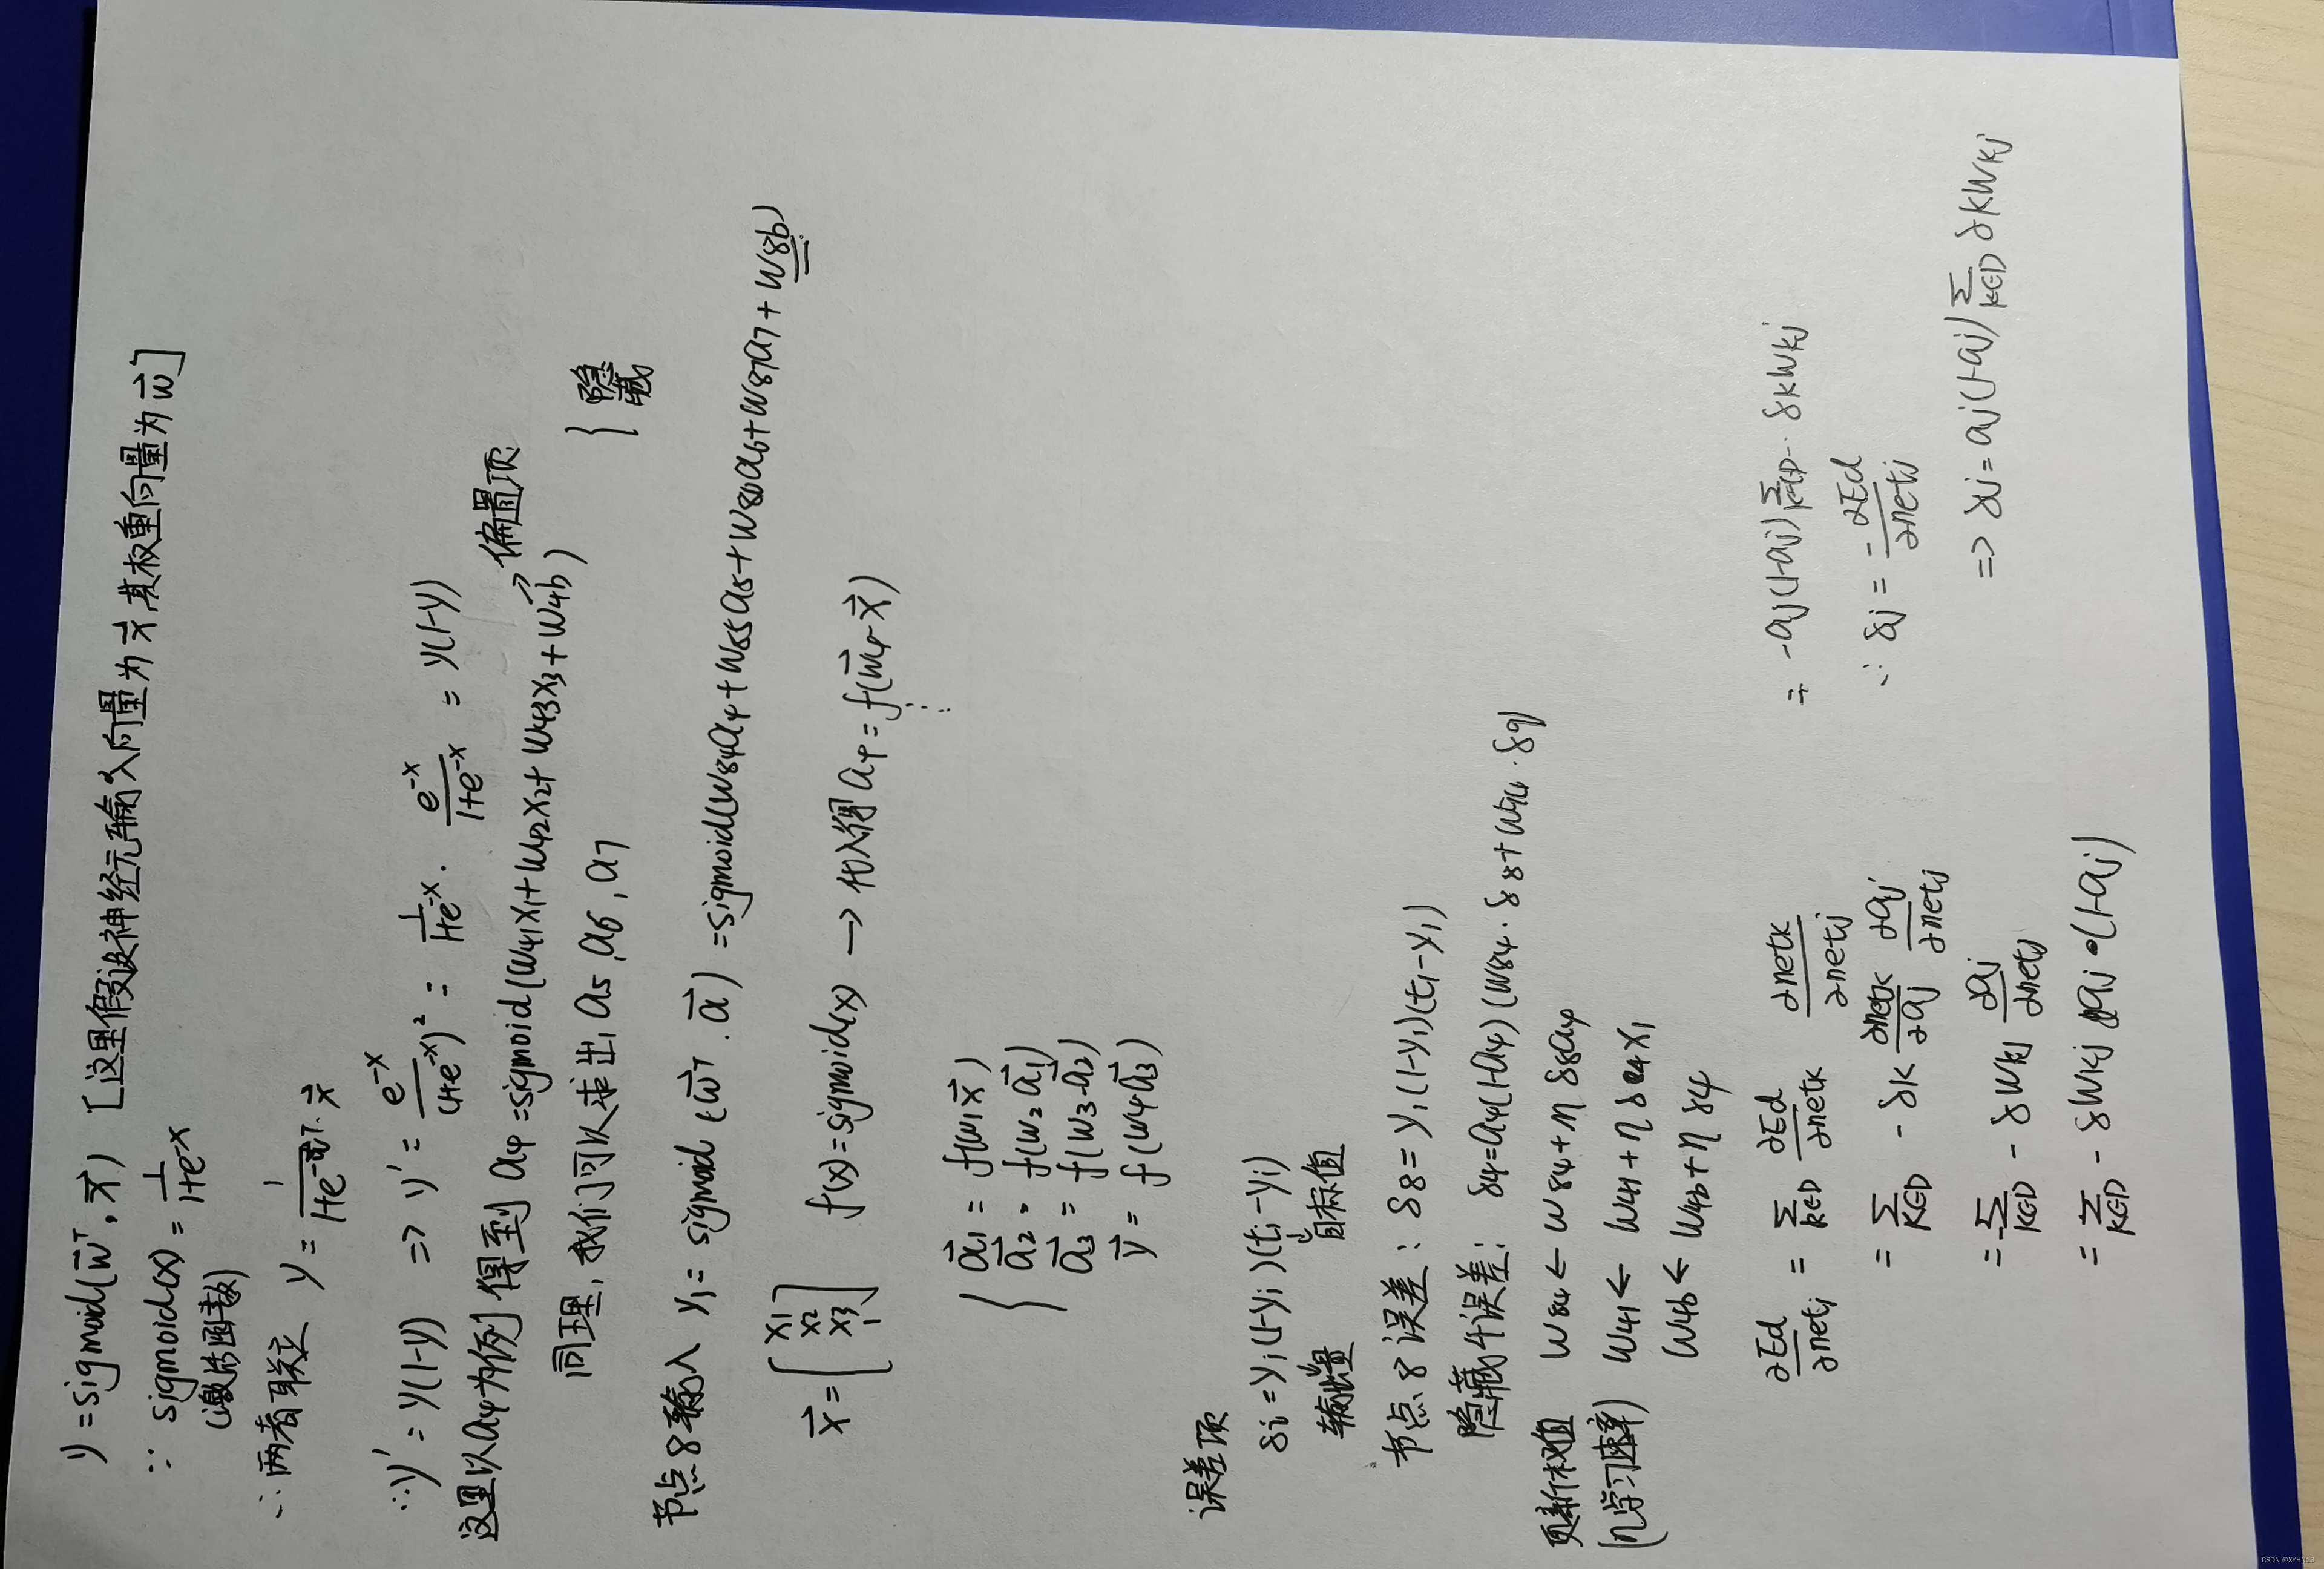 y = sigmoid(w⃗ᵀ, x⃗) [这里假设神经元输入向量为 x⃗ 其权重向量为 w⃗]
∵ sigmoid(x) = 1/(1+e^-x)
(激活函数)
∴ 两者联立 y = 1/(1+e^-w⃗ᵀ·x⃗)
∵ y' = y(1-y) => y' = e^-x/(1+e^-x)² = 1/(1+e^-x) · e^-x/(1+e^-x) = y(1-y)
这里以a4为例 得到 a4 = sigmoid(w41x1+w42x2+w43x3+w4b) → 偏置项
同理, 我们可以求出, a5, a6, a7 { 隐藏
节点8输入 y1 = sigmoid(w⃗ᵀ·a⃗) = sigmoid(w84a4+w85a5+w86a6+w87a7+w8b)
x⃗ = [x1 x2 x3 1] f(x) = sigmoid(x) → 代入得 a4 = f(w⃗4·x⃗)
a⃗1 = f(w1x⃗)
a⃗2 = f(w2 a⃗1)
a⃗3 = f(w3·a⃗2)
y⃗ = f(w4 a⃗3)
误差项
δi = yi(1-yi)(ti-yi)
目标值
节点8误差: δ8 = y1(1-y1)(t1-y1)
隐藏4误差: δ4 = a4(1-a4)(w84·δ8+w94·δ9)
更新权值 w84 ← w84+η δ8a4
(η学习速率) w41 ← w41+η δ4x1
w4b ← w4b+η δ4
∂Ed/∂netj = Σ k∈D ∂Ed/∂netk ∂netk/∂netj
= Σ k∈D -δk ∂netk/∂aj ∂aj/∂netj
= Σ k∈D -δwkj ∂aj/∂netj
= Σ k∈D -δwkj aj·(1-aj)
= -aj(1-aj) Σ k∈D · δkwkj
∴ δj = -∂Ed/∂netj
=> δj = aj(1-aj) Σ k∈D δkwkj
CSDN @XYHN13